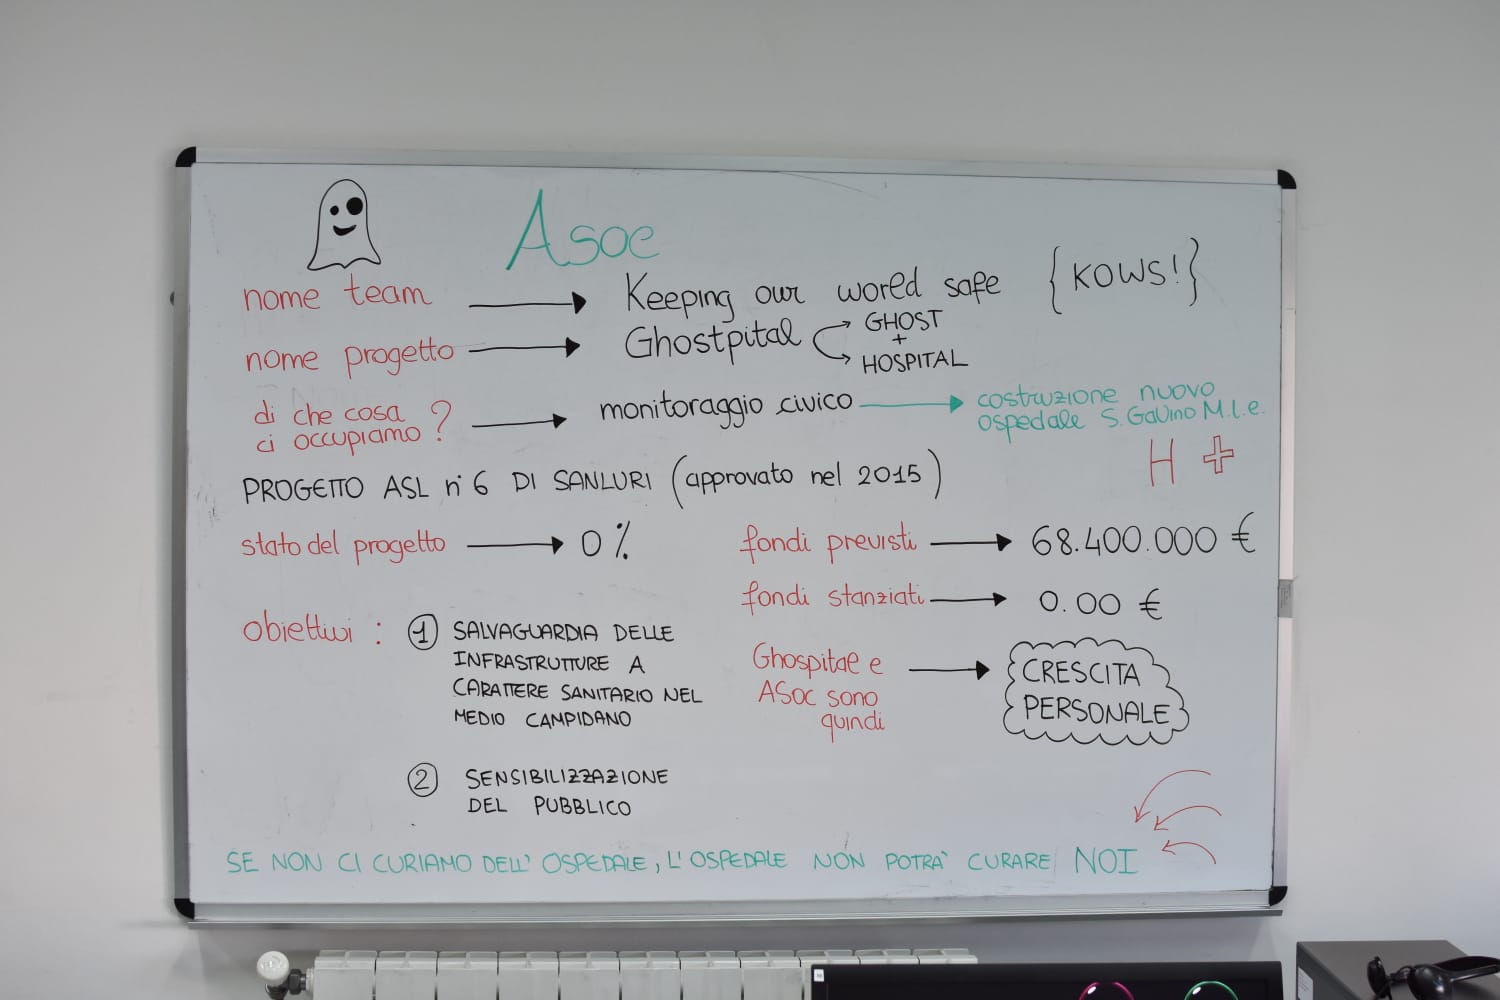 Asoc
nome team → Keeping our world safe {KOWS!}
nome progetto → Ghostpital GHOST
+
HOSPITAL
di che cosa
ci occupiamo? → monitoraggio civico → costruzione nuovo
ospedale S. Gavino M.l.e.
H +
PROGETTO ASL n° 6 DI SANLURI (approvato nel 2015)
stato del progetto → 0 %
fondi previsti → 68.400.000 €
fondi stanziati → 0.00 €
obiettivi : 1 SALVAGUARDIA DELLE
INFRASTRUTTURE A
CARATTERE SANITARIO NEL
MEDIO CAMPIDANO
2 SENSIBILIZZAZIONE
DEL PUBBLICO
Ghospital e
ASoc sono
quindi → CRESCITA
PERSONALE
SE NON CI CURIAMO DELL' OSPEDALE, L'OSPEDALE NON POTRA' CURARE NOI